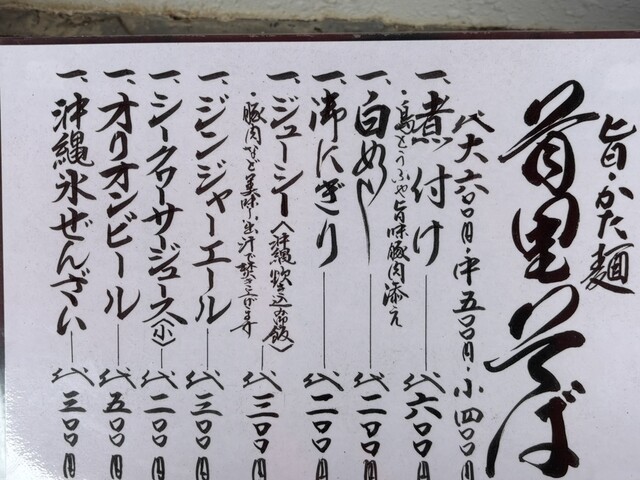 旨・かた麺
首里そば
代大六〇〇円・中五〇〇円・小四〇〇円
一、煮付け――代六〇〇円
・島とうふや旨味豚肉添え
一、白めし――代二〇〇円
一、御にぎり――代二〇〇円
一、ジューシー〈沖縄炊き込み御飯〉――代三〇〇円
・豚肉など美味し出汁で焚き上げます
一、ジンジャーエール――代三〇〇円
一、シークヮーサージュース〈小〉――代二〇〇円
一、オリオンビール――代五〇〇円
一、沖縄氷ぜんざい――代三〇〇円